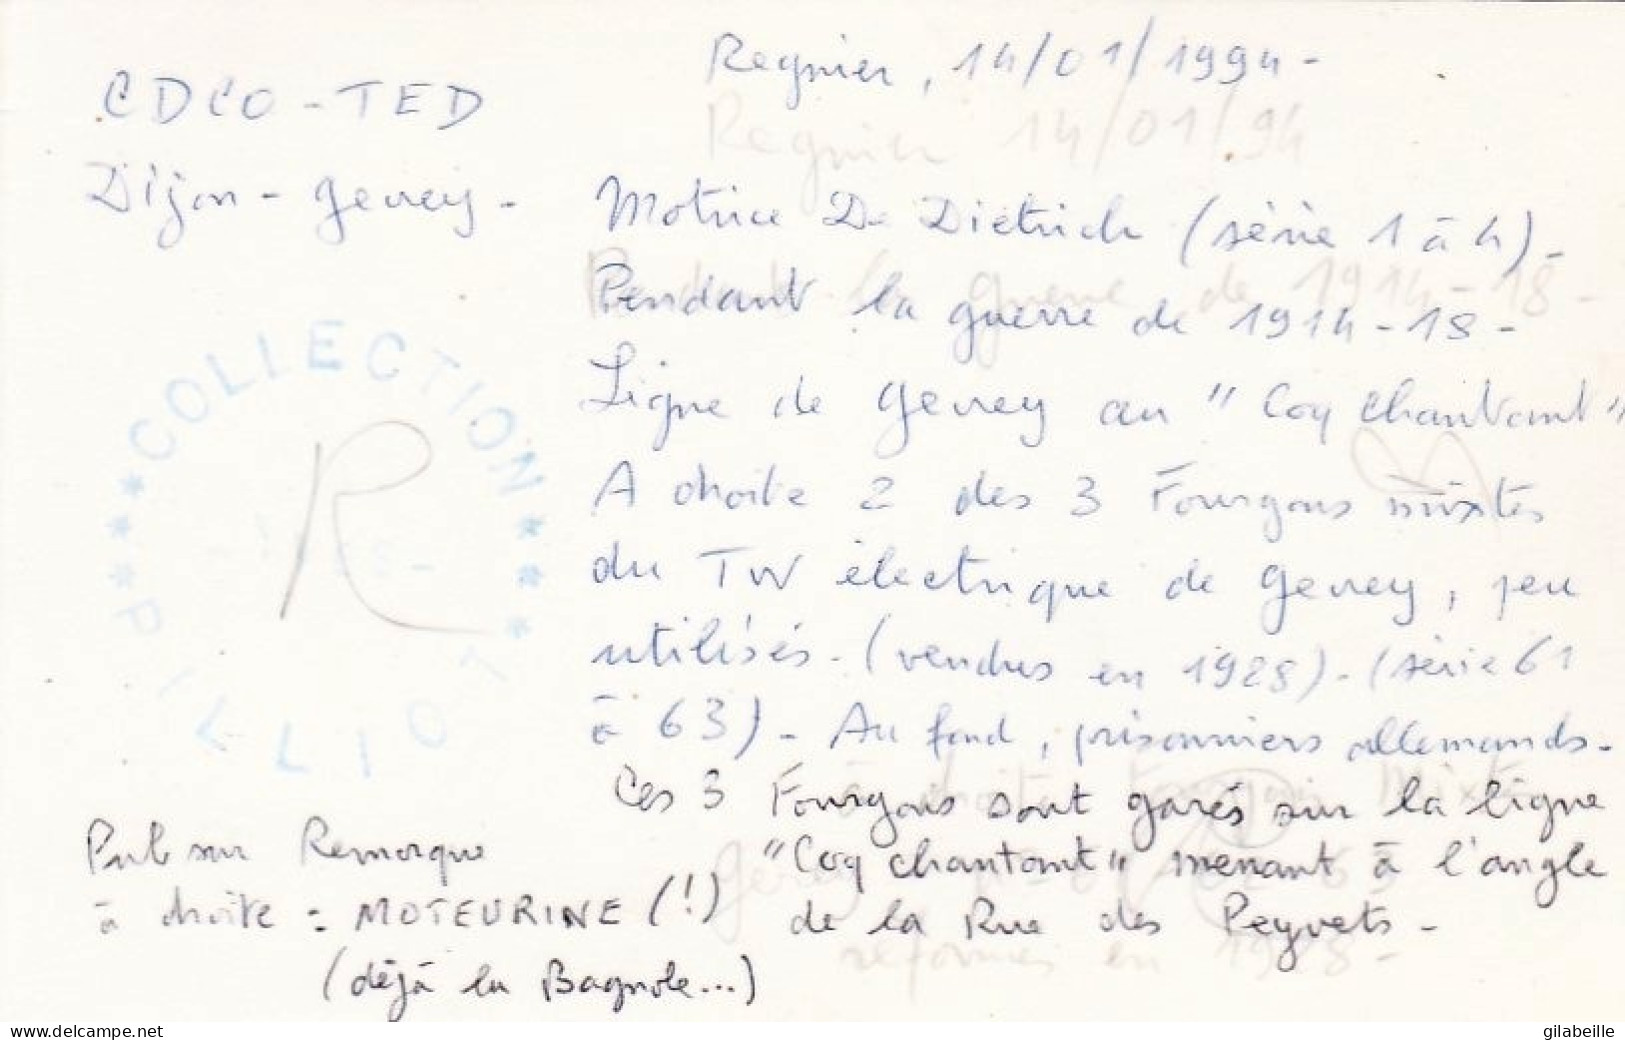 Regnier, 14/01/1994 -
CDCO - TED
Regnier 14/01/94
Dijon - Gevrey -
Motrice De Dietrich (série 1 à 4) -
Pendant la guerre de 1914 - 18 -
Ligne de Gevrey au "Coq chantant"
A droite 2 des 3 Fourgons mixtes
du TW électrique de Gevrey, peu
utilisés - (vendus en 1928) - (série 61
à 63) - Au fond, prisonniers allemands -
Ces 3 Fourgons sont garés sur la ligne
"Coq chantant" menant à l'angle
de la Rue des Peyvets -
réformés en 1928 -
COLLECTION
PILLIOT
R
Pub sur Remorque
à droite = MOTEURINE (!)
(déjà la Bagnole...)
www.delcampe.net
gilabeille